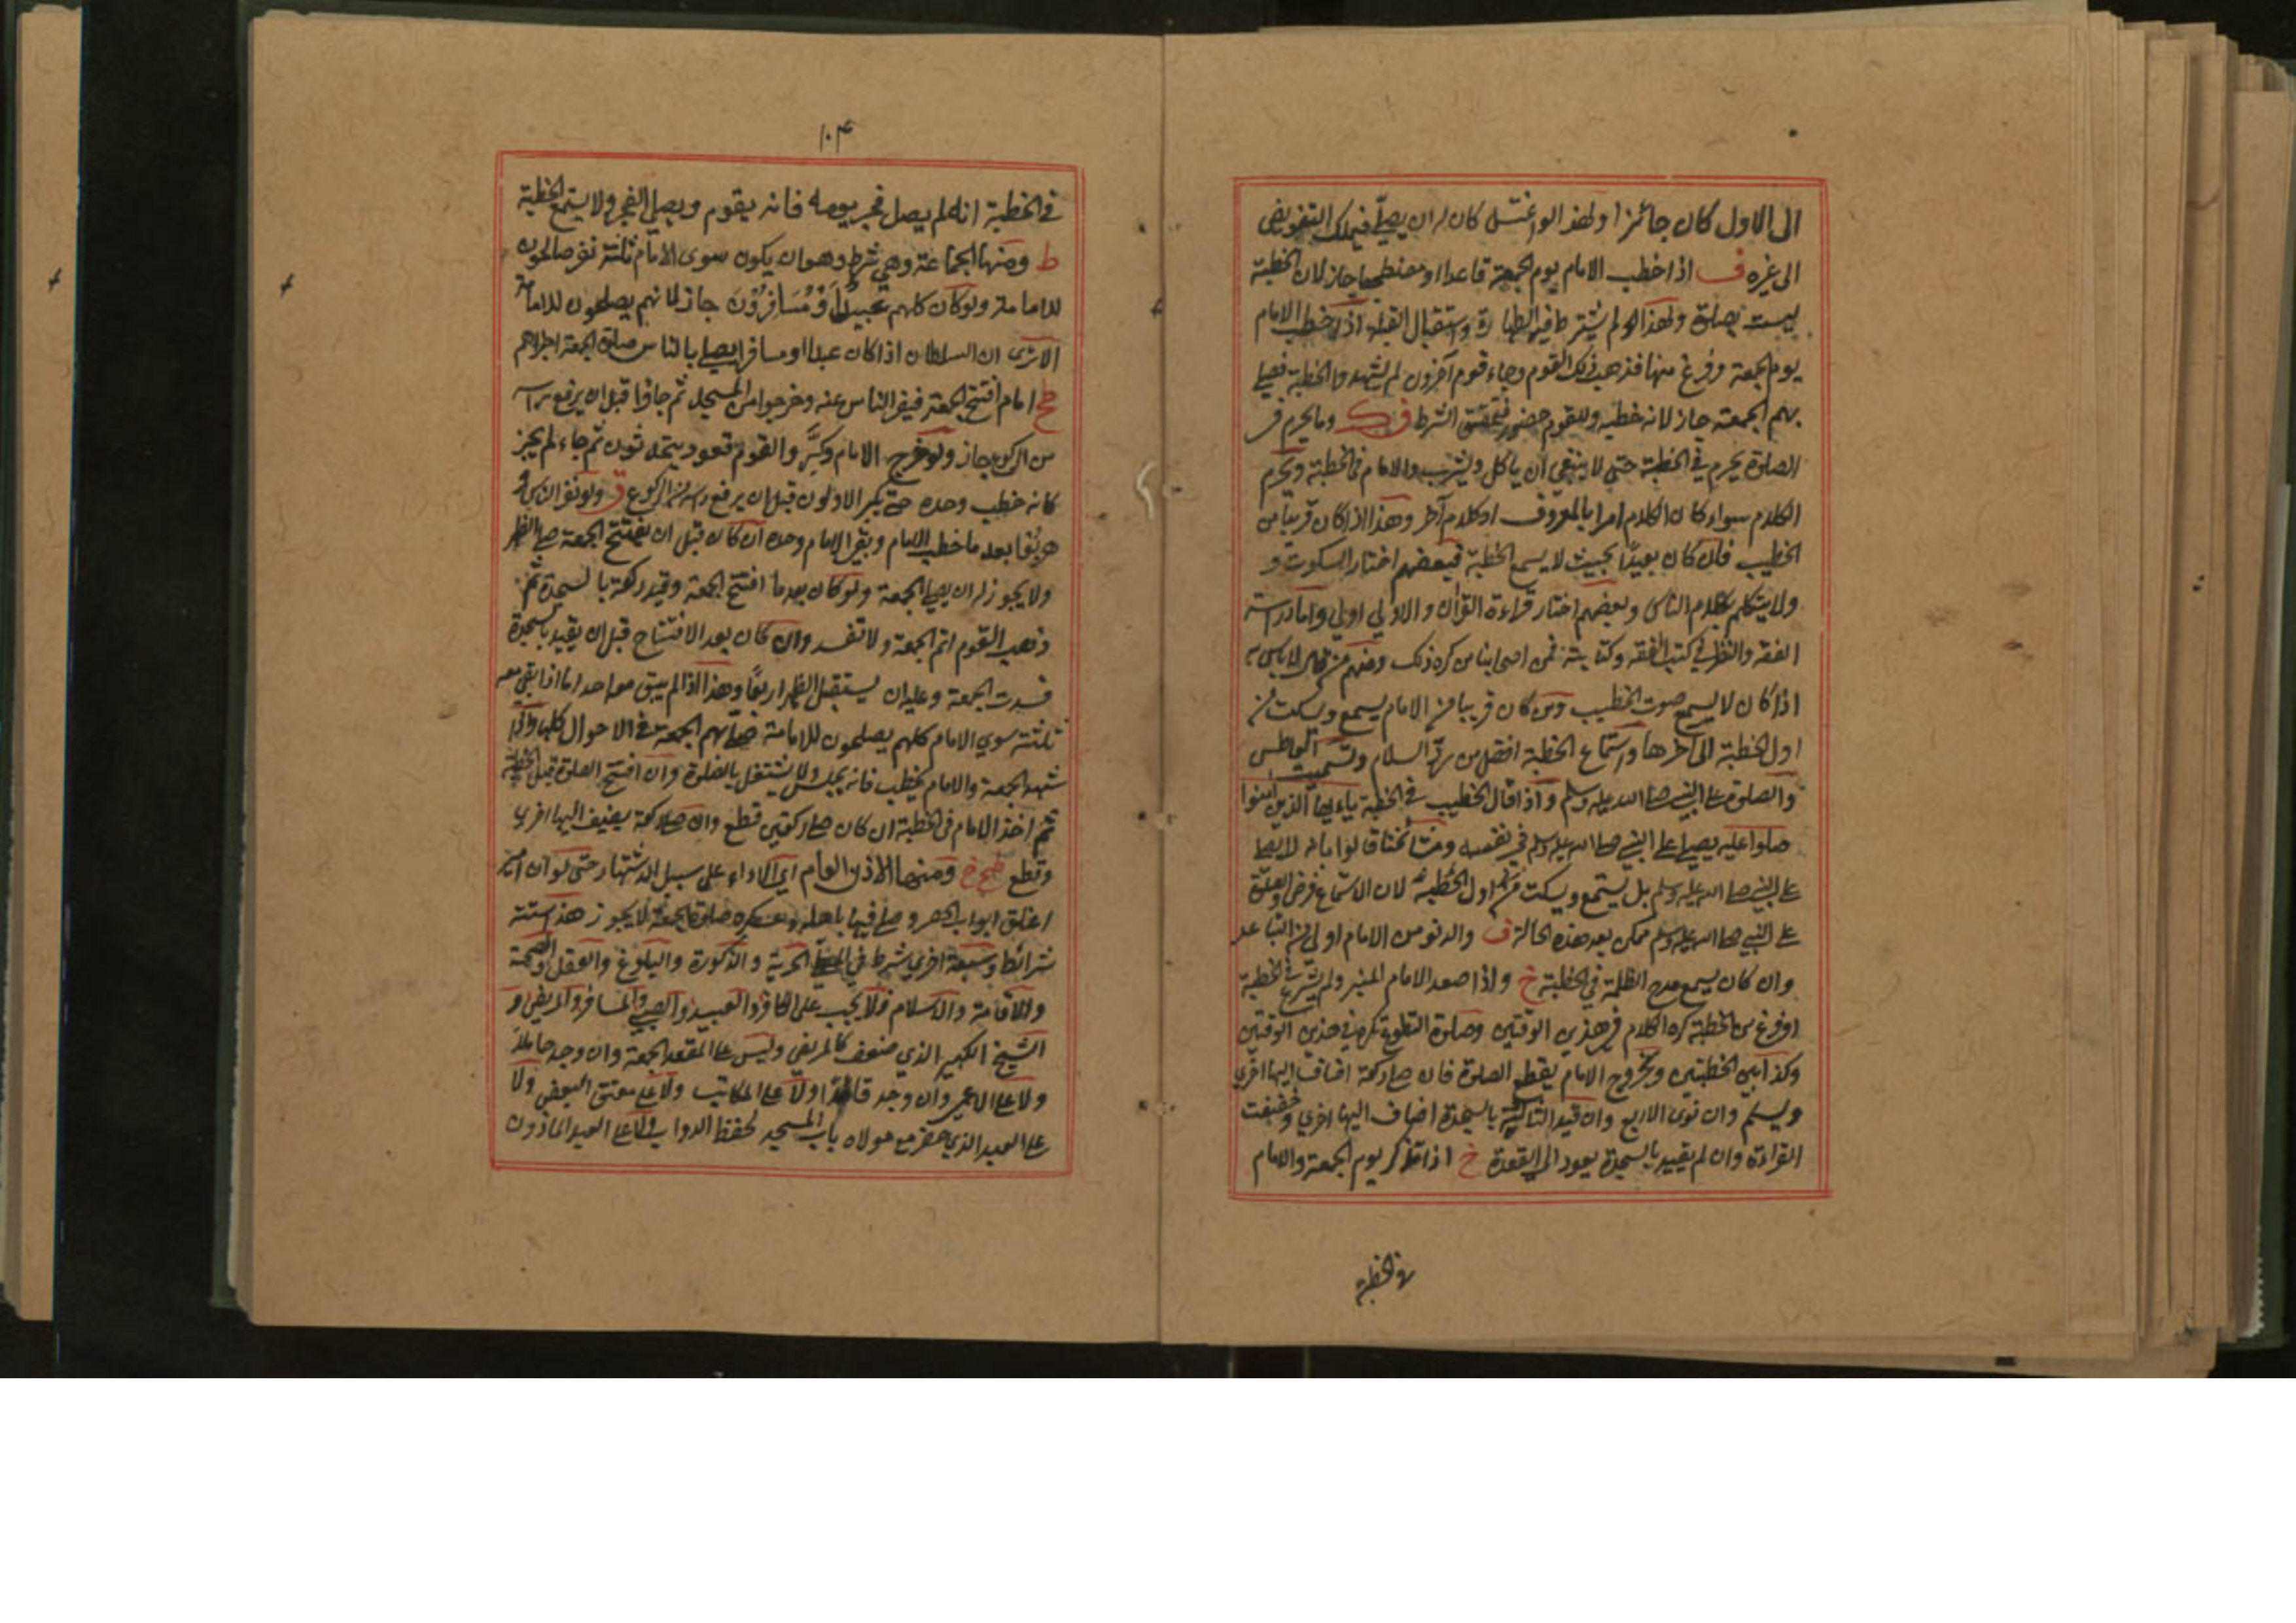 الى الاول كان جائزا ولهذا لو اغتسل كان له ان يصلي فيملك التفويض
الى غيره ف اذا خطب الامام يوم الجمعة قاعدا او مضطجعا جاز لان الخطبة
ليست بصلوة ولهذا لم يشترط فيها الطهارة واستقبال القبلة اذا خطب الامام
يوم الجمعة وفرغ منها فذهب ذلك القوم وجاء قوم آخرون لم يشهدوا الخطبة فصلى
بهم الجمعة جاز لانه خطب وللقوم حضور فتحقق الشرط وما يحرم في
الصلوة يحرم في الخطبة حتى لا ينبغي ان ياكل ويشرب والامام في الخطبة ويحرم
الكلام سواء كان الكلام امرا بالمعروف او كلام آخر وهذا اذا كان قريبا من
الخطيب فان كان بعيدًا بحيث لا يسمع الخطبة فبعضهم اختار السكوت و
ولا يتكلم بكلام الناس وبعضهم اختار قراءة القرأن والاولى اولى واما دراسة
الفقه والنظر في كتب الفقه وكتابته فمن اصحابنا من كره ذلك ومنهم من قال لا باس به
اذا كان لا يسمع صوت الخطيب ومن كان قريبا من الامام يسمع ويسكت من
اول الخطبة الى آخرها واستماع الخطبة افضل من رد السلام وتشميت العاطس
والصلوة على النبي صلى الله عليه وسلم واذا قال الخطيب في الخطبة ياءيها الذين امنوا
صلوا عليه يصلي على النبي صلى الله عليه وسلم في نفسه ومشائخنا قالوا بانه لا يصلي
على النبي صلى الله عليه وسلم بل يستمع ويسكت من اول الخطبة لان الاستماع فرض والصلوة
على النبي صلى الله عليه وسلم ممكن بعد هذه الحالة ف والدنو من الامام اولى من التباعد
وان كان يسمع مدح الظلمة في الخطبة خ واذا صعد الامام المنبر ولم يشرع في الخطبة
او فرغ من الخطبة كره الكلام في هذين الوقتين وصلوة التطوع تكره في هذين الوقتين
وكذا بين الخطبتين وبخروج الامام يقطع الصلوة فان صلى ركعة اضاف اليها اخرى
ويسلم وان نوى الاربع وان قيد الثالثة بالسجدة اضاف اليها اخرى وخففت
القراءة وان لم يقيد بالسجدة يعود الى القعدة خ اذا تذكر يوم الجمعة والامام
في الخطبة
١٠٤
في الخطبة انه لم يصل فجر يومه فانه يقوم ويصلي الفجر ولا يستمع الخطبة
ط ومنها الجماعة وهي شرط وهو ان يكون سوى الامام ثلثة نفر صالحون
للامامة ولو كان كلهم عَبِيدًا وْمُسَافِرُوْنَ جاز لانهم يصلحون للامامة
الا ترى ان السلطان اذا كان عبدا او مسافرا يصلي بالناس صلوة الجمعة اجزاهم
امام افتتح الجمعة فنفر الناس عنه وخرجوا من المسجد ثم جاؤا قبل ان يرفع راسه
من الركوع جاز ولو خرج الامام وكبَّر والقوم قعود يتحدثون ثم جاء لم يجز
كانه خطب وحده حتى يكبر الاولون قبل ان يرفع راسه من الركوع ق ولو نفر الناس او
هربُوا بعد ما خطب الامام وبقي الامام وحده ان كان قبل ان يفتتح الجمعة صلى الظهر
ولا يجوز له ان يصلي الجمعة ولو كان بعد ما افتتح الجمعة وقيد ركعة بالسجدة ثم
ذهب القوم اتم الجمعة ولا تفسد وان كان بعد الافتتاح قبل ان يقيد بالسجدة
فسدت الجمعة وعليه ان يستقبل الظهر اربعًا وهذا اذا لم يبق معه احد اما اذا بقي معه
ثلثة سوى الامام كلهم يصلحون للامامة صلى بهم الجمعة في الاحوال كلها
شهد الجمعة والامام يخطب فانه يجلس ولا يشتغل بالصلوة وان افتتح الصلوة قبل الخطبة
ثم اخذ الامام في الخطبة ان كان صلى ركعتين قطع وان صلى ركعة يضيف اليها اخرى
وقطع ومنها الاذن العام اي الاداء على سبيل الاشتهار حتى لو ان
اغلق ابواب الحصر وصلى فيها باهله وعسكره صلوة الجمعة لا يجوز هذه ستة
شرائط وسبعة اخرى شرط في الحرية والذكورة والبلوغ والعقل والصحة
والاقامة والاسلام فلا يجب على الكافر والعبيد والصبي والمسافر والمريض و
الشيخ الكبير الذي ضعف كالمريض وليس على المقعد الجمعة وان وجد حاملا
ولا على الاعمى وان وجد قائدا ولا على المكاتب ولا على معتق البعض ولا
على العبد الذي حضر مع مولاه باب المسجد لحفظ الدواب ولا على العبد الماذون